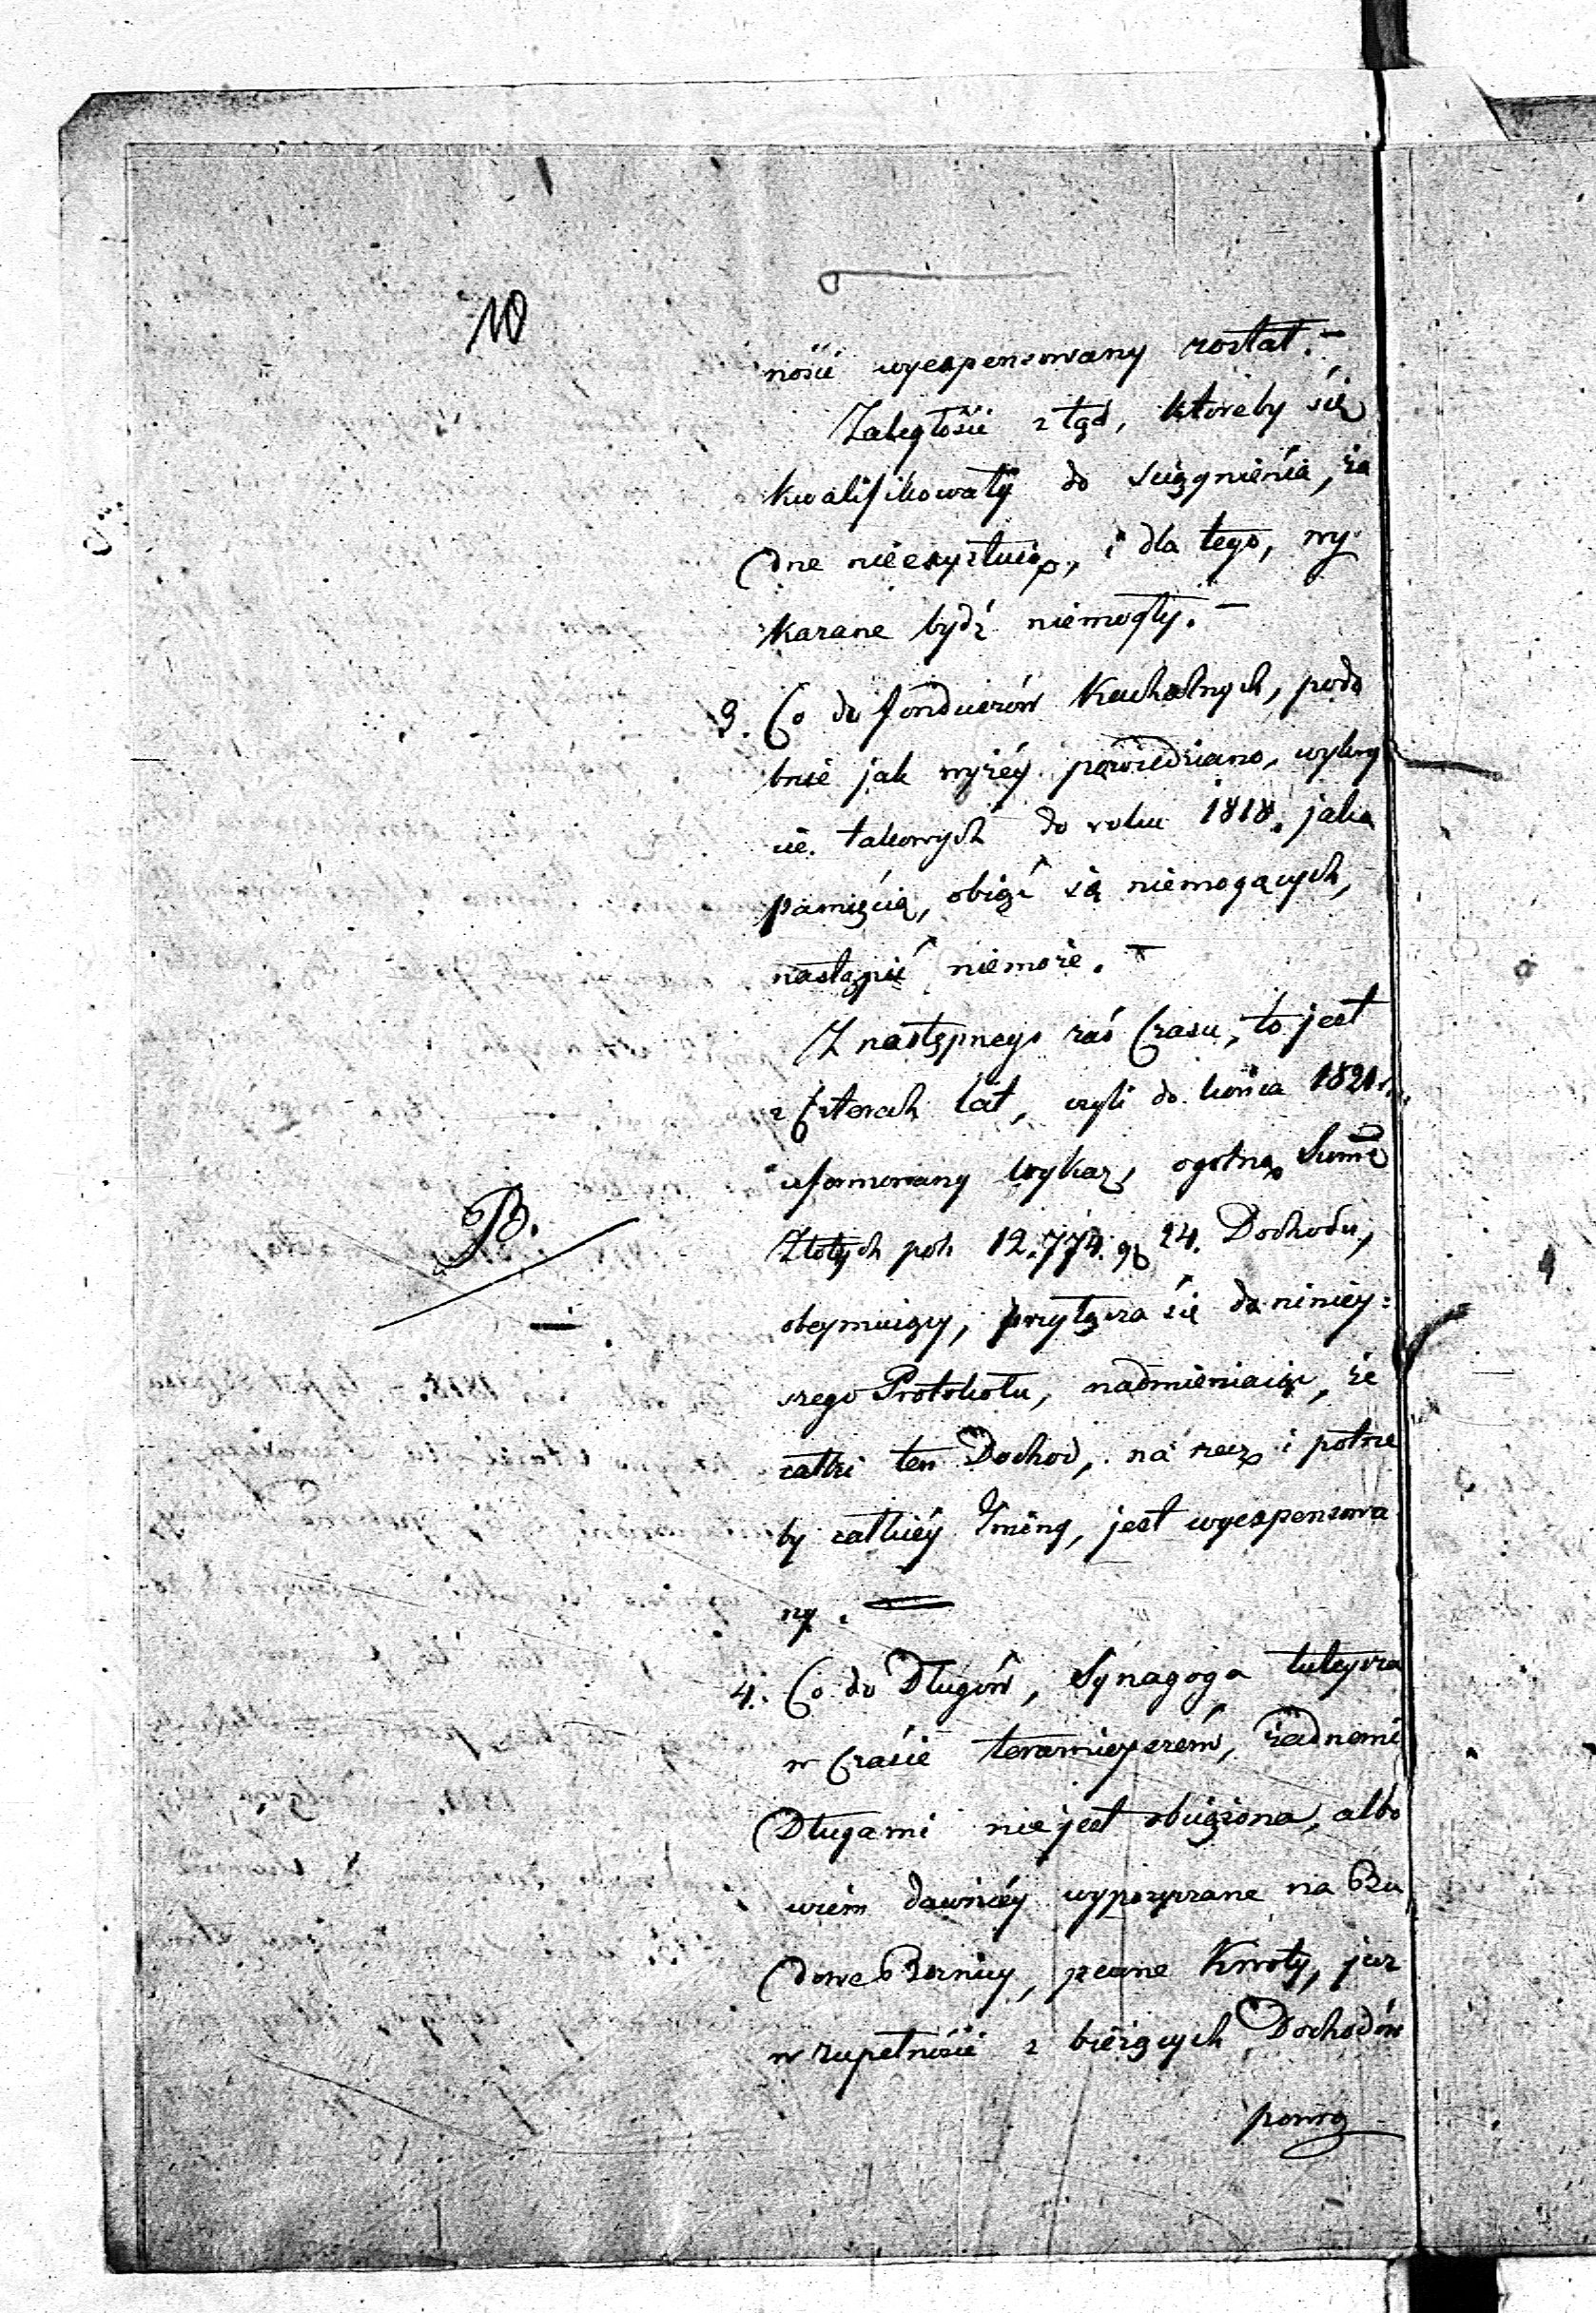 10
ności wyexpensowany został. –
Zaległości ztąd, któreby się
kwalifikowały do ściągnienia, ża
dne nieexystuią, i dla tego, wy-
kazane bydź niemogły. –
3. Co do funduszów Kachalnych, podo
bnie jak wyżéy powiedziano, wylicze
nie takowych do roku 1818. jako
pamięcią, obiąć się niemogących,
nastąpić niemoże. –
Z następnego zaś Czasu, to jest
z Czterech lat, czyli do końca 1821 r.
uformowany Wykaz, ogólną Summę
Złotych pols 12.774. g 24. Dochodu,
B.
obeymuiący, przyłącza się do niniey:
szego Protokołu, nadmieniaiąc, że
całki ten Dochod, na rzecz i potrze
by całkiéy Gminy, jest wyexpensowa
ny. –
4. Co do Długów, Synagoga tuteysza
w Czasie teraznieyszém, żadnemi
Długami nie jest obciążona, albo
wiem dawniéy wypożyczane na Bu
dowę Boznicy, pewne Kwoty, już
w zupełności z bieżących Dochodów
powró